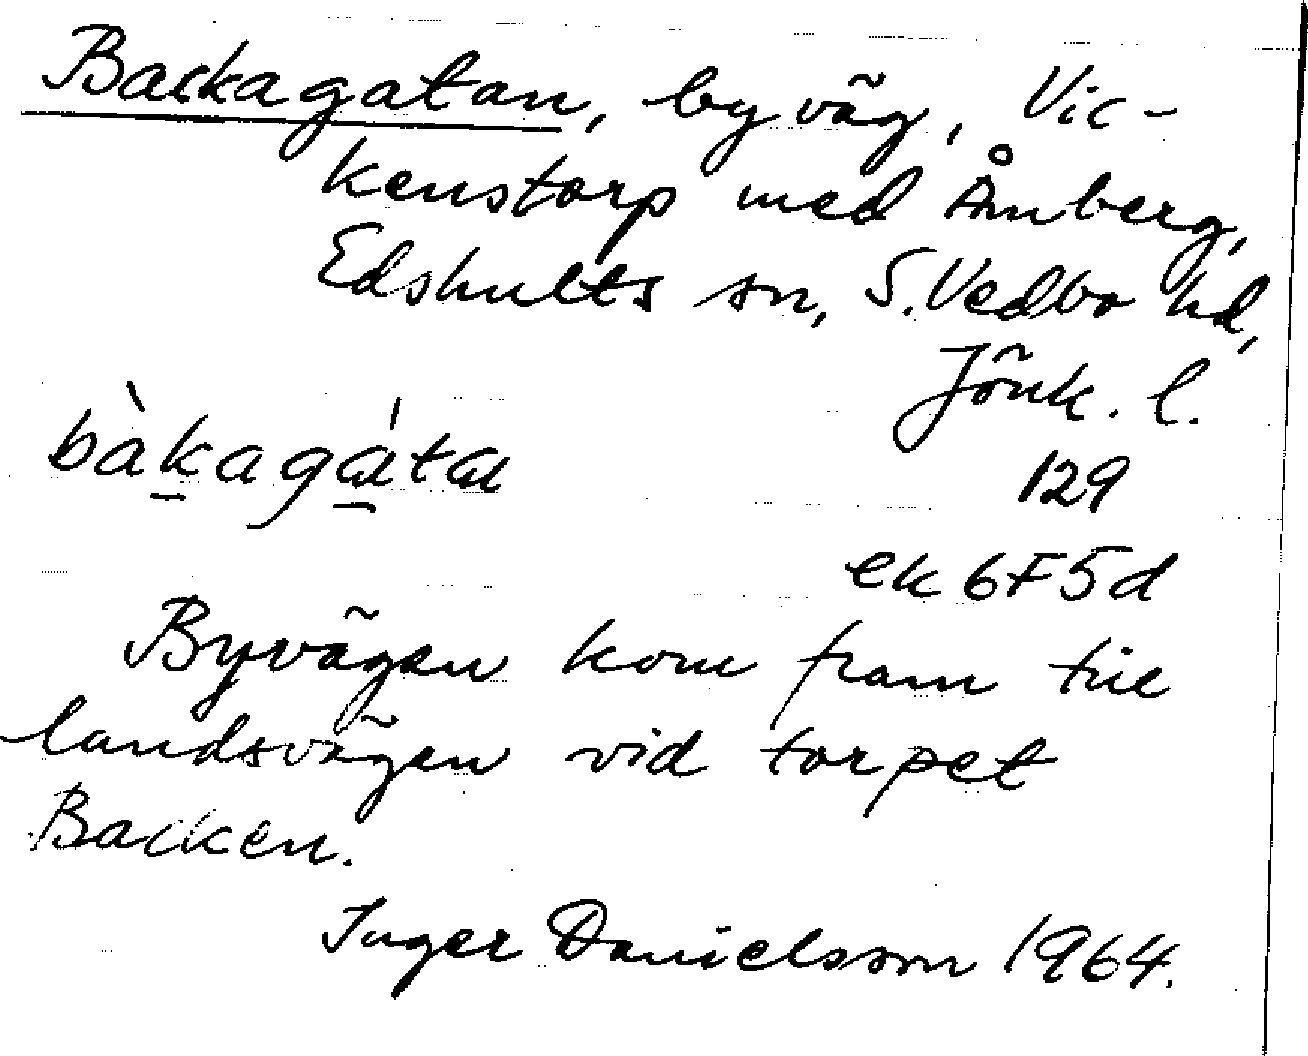 Backagatan, byväg, Vic-
kenstorp med Åmberg,
Edshults sn, S. Vedbo hd,
Jönk. l.
bàkagáta
129
ek 6F5d
Byvägen kom fram till
landsvägen vid torpet
Backen.
Inger Danielsson 1964.